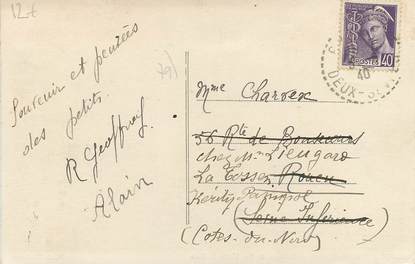 12 f
Souvenir et pensées
des petits.
R Geoffroy
Alain
POSTES 40
40
DEUX-SÈV
Mme Charvex
58 Rte de Bonsecours
chez Mr Lieugard
La Fosse Rouen
Kérity Paimpol
(Seine Inférieure)
(Cotes-du-Nord)